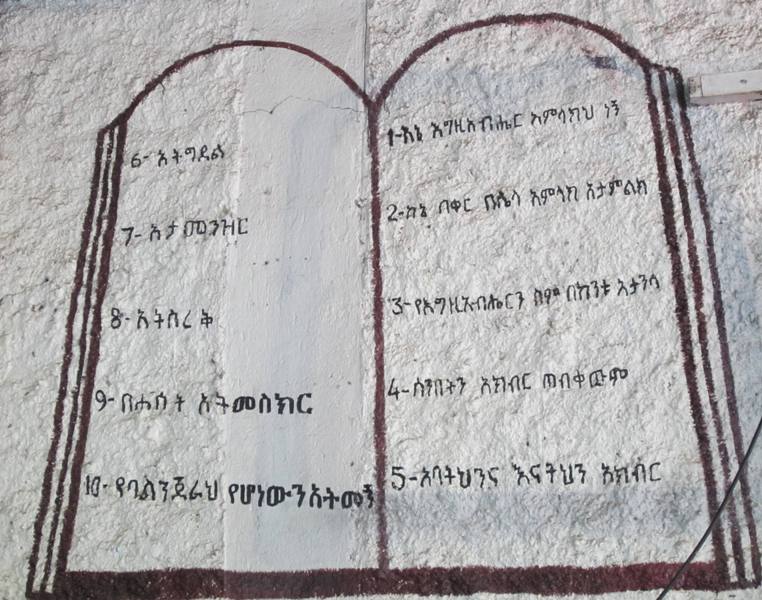 1-እኔ እግዚአብሔር አምላክህ ነኝ
2-ከእኔ በቀር በሌላ አምላክ አታምልክ
3-የእግዚአብሔርን ስም በከንቱ አታንሳ
4-ሰንበትን አክብር ጠብቀውም
5-አባትህንና እናትህን አክብር
6-አትግደል
7-አታመንዝር
8-አትስረቅ
9-በሐሰት አትመስክር
10-የባልንጀራህ የሆነውን አትመኝ